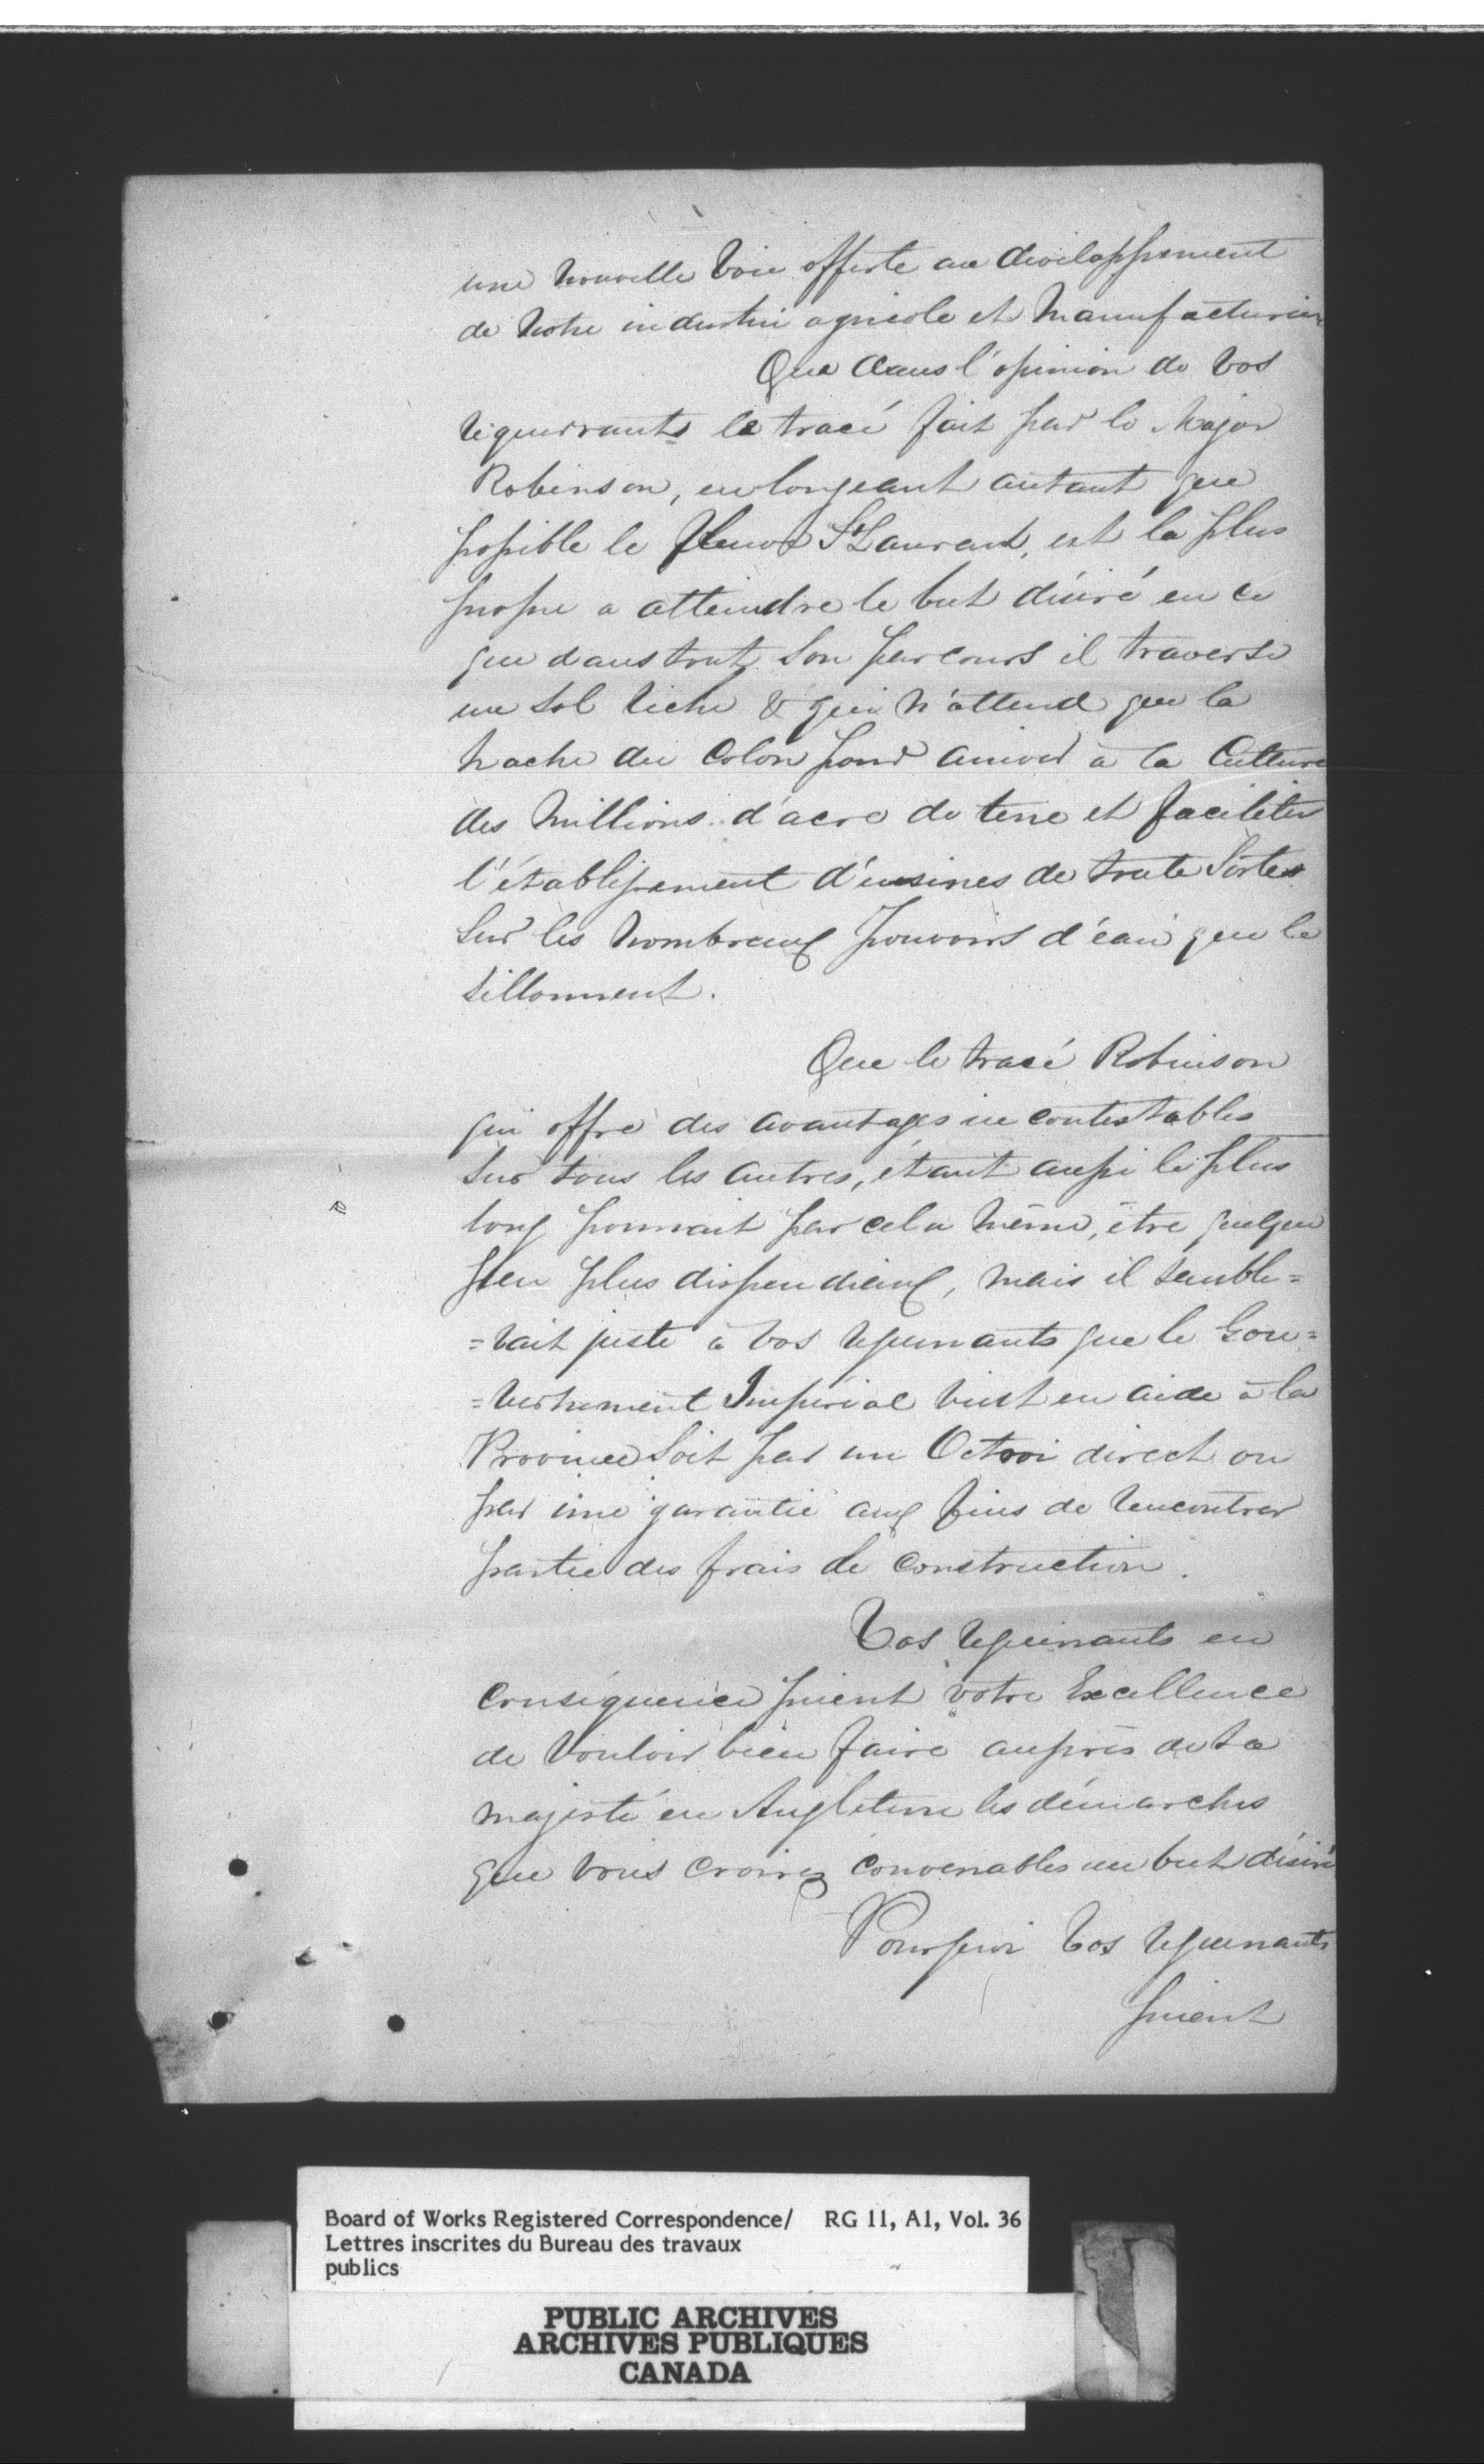 une nouvelle voie offerte au développement
de notre industrie agricole et manufacturière
Que dans l'opinion de vos
requerrants le tracé fait par le Major
Robinson, en longeant autant que
possible le fleuve St Laurent, est la plus
propre a atteindre le but désiré en ce
que dans tout son parcours il traverse
un sol riche & qui n'attend que la
hache du colon pour amener à la culture
des millions d'acre de terre et faciliter
l'établissement d'usines de toute sortes
sur les nombreux pouvoirs d'eau que le
sillonnent.
Que le tracé Robinson
qui offre des avantages incontestables
sur tous les autres, étant aussi le plus
long pourrait par cela même, être quelque
peu plus dispendieux, mais il semble=
=rait juste à vos requerrants que le Gou=
=vernement Impérial vint en aide à la
Province soit par un Octroi direct ou
par une garantie aux fins de rencontrer
partie des frais de construction.
Vos requerrants en
conséquence prient votre Excellence
de vouloir bien faire auprès de sa
majesté en Angleterre les démarches
que vous croirez convenables au but désiré
Pourquoi vos requerrants
prient
Board of Works Registered Correspondence/ RG 11, A1, Vol. 36
Lettres inscrites du Bureau des travaux
publics
PUBLIC ARCHIVES
ARCHIVES PUBLIQUES
CANADA